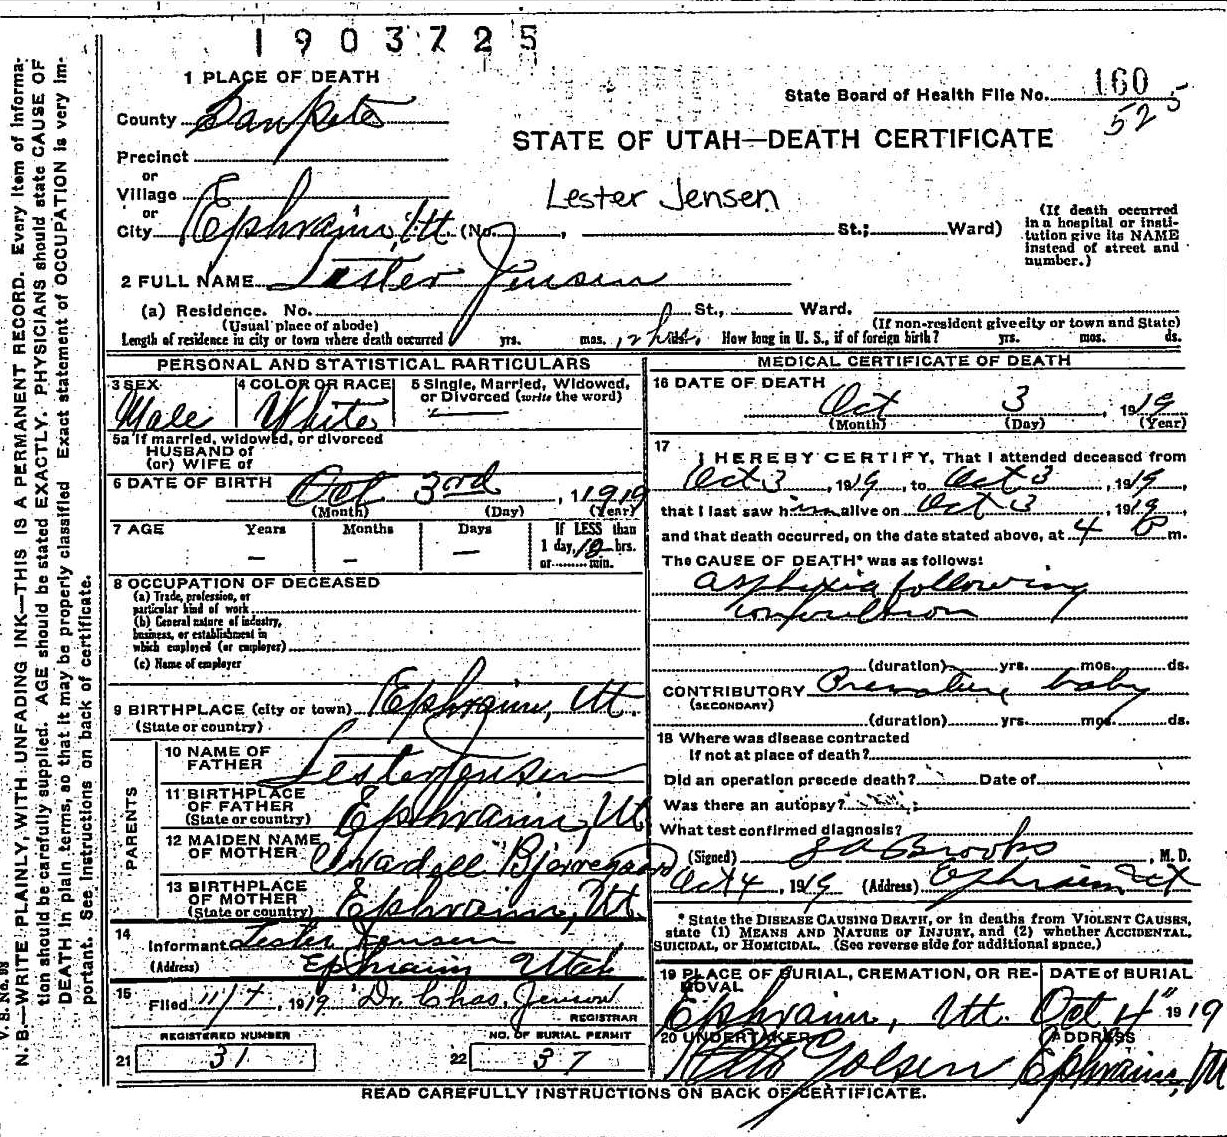 1903725
1 PLACE OF DEATH
State Board of Health File No. 160
525
County Sanpete
STATE OF UTAH—DEATH CERTIFICATE
Precinct
or
Village
Lester Jensen
or
City Ephraim, Ut. (No. , St.; Ward)
(If death occurred in a hospital or insti-
tution give its NAME
instead of street and
number.)
2 FULL NAME Lester Jensen
(a) Residence. No. St., Ward.
(Usual place of abode) (If non-resident give city or town and State)
Length of residence in city or town where death occurred yrs. mos. How long in U. S., if of foreign birth? yrs. mos. ds.
PERSONAL AND STATISTICAL PARTICULARS
3 SEX
Male
4 COLOR OR RACE
White
5 Single, Married, Widowed,
or Divorced (write the word)
—
5a If married, widowed, or divorced
HUSBAND of
(or) WIFE of
6 DATE OF BIRTH Oct 3rd, 1919
(Month) (Day) (Year)
7 AGE Years Months Days If LESS than
— — — 1 day, hrs.
or min.
8 OCCUPATION OF DECEASED
(a) Trade, profession, or
particular kind of work
(b) General nature of industry,
business, or establishment in
which employed (or employer)
(c) Name of employer
9 BIRTHPLACE (city or town) Ephraim, Ut.
(State or country)
PARENTS
10 NAME OF
FATHER Lester Jensen
11 BIRTHPLACE
OF FATHER
(State or country) Ephraim, Ut
12 MAIDEN NAME
OF MOTHER Bjerregaard
13 BIRTHPLACE
OF MOTHER
(State or country) Ephraim, Ut.
14
Informant Lester Jensen
(Address) Ephraim Utah
15
Filed 11/7, 1919 Dr. Chas. Jenson
REGISTRAR
REGISTERED NUMBER NO. OF BURIAL PERMIT
21 31 22 37
MEDICAL CERTIFICATE OF DEATH
16 DATE OF DEATH
Oct 3, 1919
(Month) (Day) (Year)
17
I HEREBY CERTIFY, That I attended deceased from
Oct 3, 1919, to Oct 3, 1919,
that I last saw him alive on Oct 3, 1919,
and that death occurred, on the date stated above, at 4 m.
The CAUSE OF DEATH* was as follows:
asphyxia following
convulsion
(duration) yrs. mos. ds.
CONTRIBUTORY Premature baby
(SECONDARY)
(duration) yrs. mos. ds.
18 Where was disease contracted
If not at place of death?
Did an operation precede death? Date of
Was there an autopsy?
What test confirmed diagnosis?
(Signed) Brooks, M. D.
Oct 4, 1919 (Address) Ephraim Ut
* State the DISEASE CAUSING DEATH, or in deaths from VIOLENT CAUSES,
state (1) MEANS AND NATURE OF INJURY, and (2) whether ACCIDENTAL,
SUICIDAL, or HOMICIDAL. (See reverse side for additional space.)
19 PLACE OF BURIAL, CREMATION, OR RE-
MOVAL
Ephraim, Ut.
DATE of BURIAL
Oct 4" 1919
20 UNDERTAKER
Olsen
ADDRESS
Ephraim, Ut
READ CAREFULLY INSTRUCTIONS ON BACK OF CERTIFICATE.
V. S. No. 98
N. B.—WRITE PLAINLY, WITH UNFADING INK—THIS IS A PERMANENT RECORD. Every item of informa-
tion should be carefully supplied. AGE should be stated EXACTLY. PHYSICIANS should state CAUSE OF
DEATH in plain terms, so that it may be properly classified. Exact statement of OCCUPATION is very im-
portant. See instructions on back of certificate.